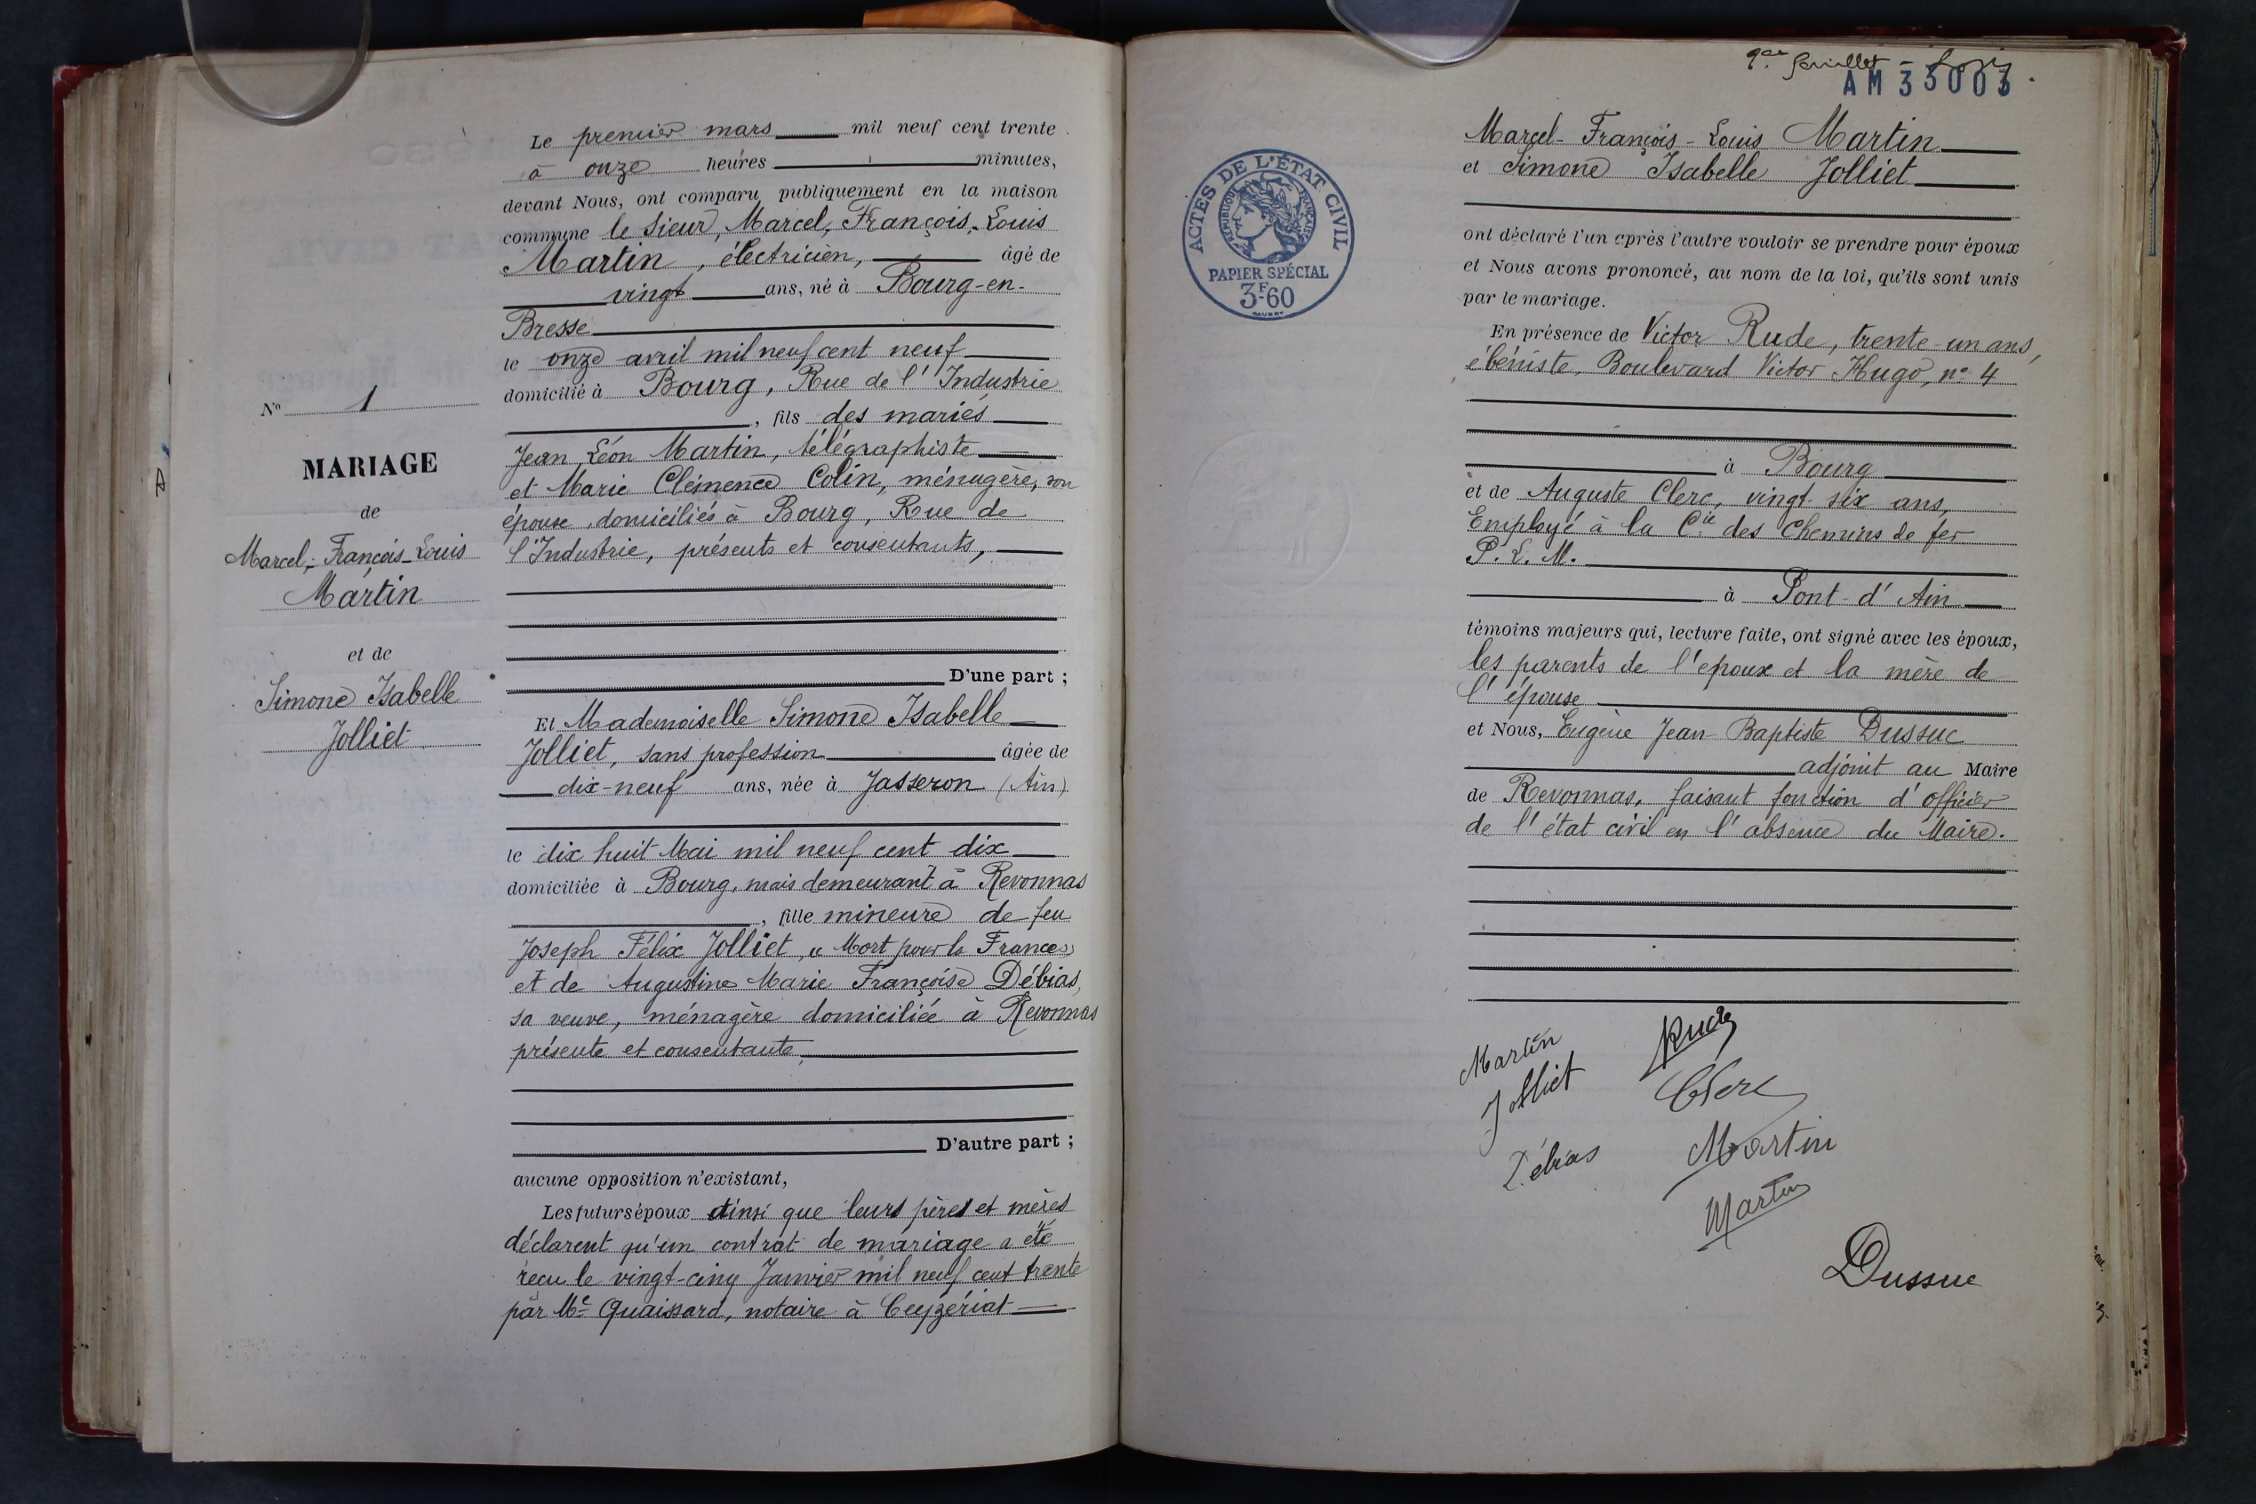 Le premier mars mil neuf cent trente
à onze heures minutes,
devant Nous, ont comparu publiquement en la maison
commune le sieur, Marcel, François, Louis
Martin, électricien, âgé de
vingt ans, né à Bourg-en-
Bresse
le onze avril mil neuf cent neuf
domicilié à Bourg, Rue de l'Industrie
, fils des mariés
Jean Léon Martin, télégraphiste
et Marie Clémence Colin, ménagère, son
épouse, domiciliés à Bourg, Rue de
l'Industrie, présents et consentants,
D'une part ;
Et Mademoiselle Simone Isabelle
Jolliet, sans profession âgée de
dix-neuf ans, née à Jasseron (Ain)
le dix huit Mai mil neuf cent dix
domiciliée à Bourg, mais demeurant à Revonnas
, fille mineure de feu
Joseph Félix Jolliet, « Mort pour la France »
et de Augustine Marie Françoise Débias,
sa veuve, ménagère domiciliée à Revonnas
présente et consentante,
D'autre part ;
aucune opposition n'existant,
Les futurs époux ainsi que leurs pères et mères
déclarent qu'un contrat de mariage a été
reçu le vingt-cinq Janvier mil neuf cent trente
par Me Quaissard, notaire à Ceyzériat
No 1
MARIAGE
de
Marcel, François Louis
Martin
et de
Simone Isabelle
Jolliet
feuillet
AM 33003
ACTES DE L'ÉTAT CIVIL
RÉPUBLIQUE FRANÇAISE
PAPIER SPÉCIAL
3F60
Marcel-François-Louis Martin
et Simone Isabelle Jolliet
ont déclaré l'un après l'autre vouloir se prendre pour époux
et Nous avons prononcé, au nom de la loi, qu'ils sont unis
par le mariage.
En présence de Victor Rude, trente-un ans,
ébéniste, Boulevard Victor Hugo, no 4
à Bourg
et de Auguste Clerc, vingt-six ans,
Employé à la Cie des Chemins de fer
P. L. M.
à Pont-d'Ain
témoins majeurs qui, lecture faite, ont signé avec les époux,
les parents de l'époux et la mère de
l'épouse
et Nous, Eugène Jean-Baptiste Dussuc
adjoint au Maire
de Revonnas, faisant fonction d'officier
de l'état civil en l'absence du Maire.
Martin
Rude
Jolliet
Clerc
Débias
Martin
Martin
Dussuc